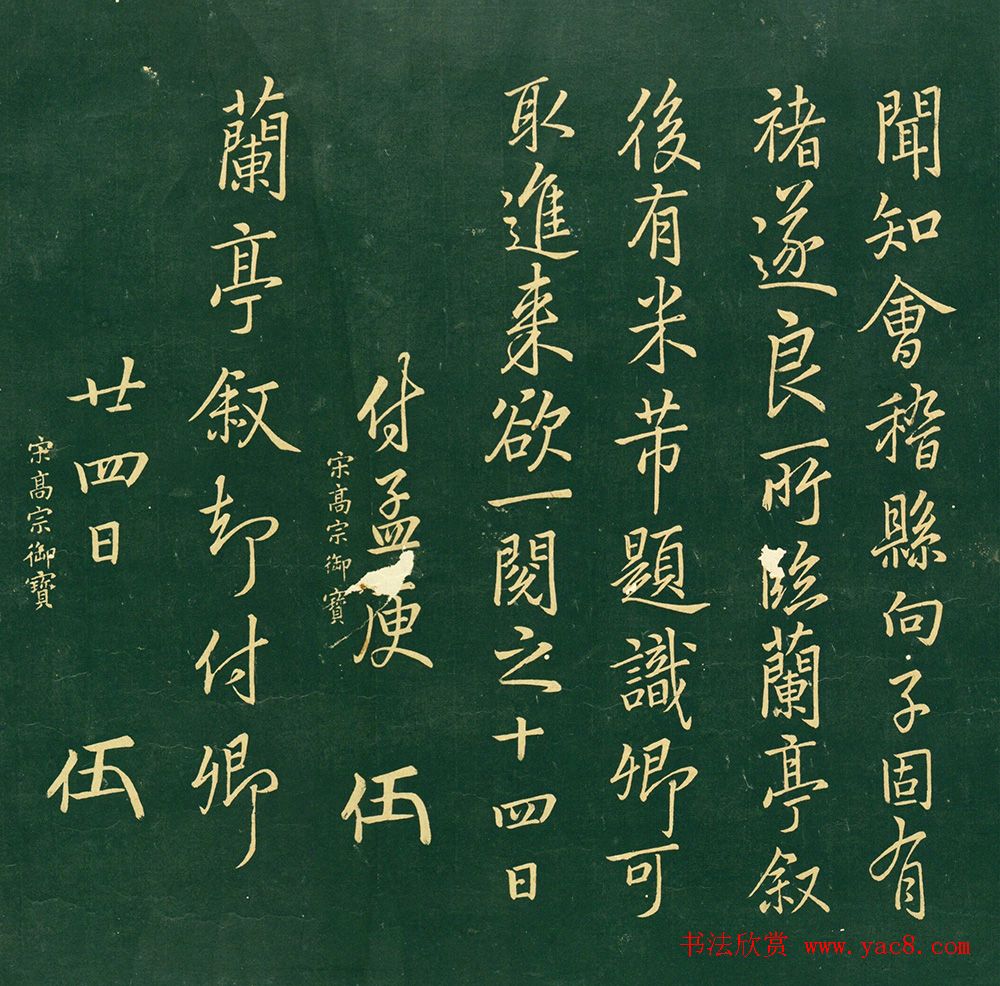 聞知會稽縣向子固有
褚遂良所臨蘭亭叙
後有米芾題識卿可
取進來欲一閱之十四日
付孟庾 伍
宋高宗御寶
蘭亭叙却付卿
廿四日 伍
宋高宗御寶
书法欣赏 www.yac8.com